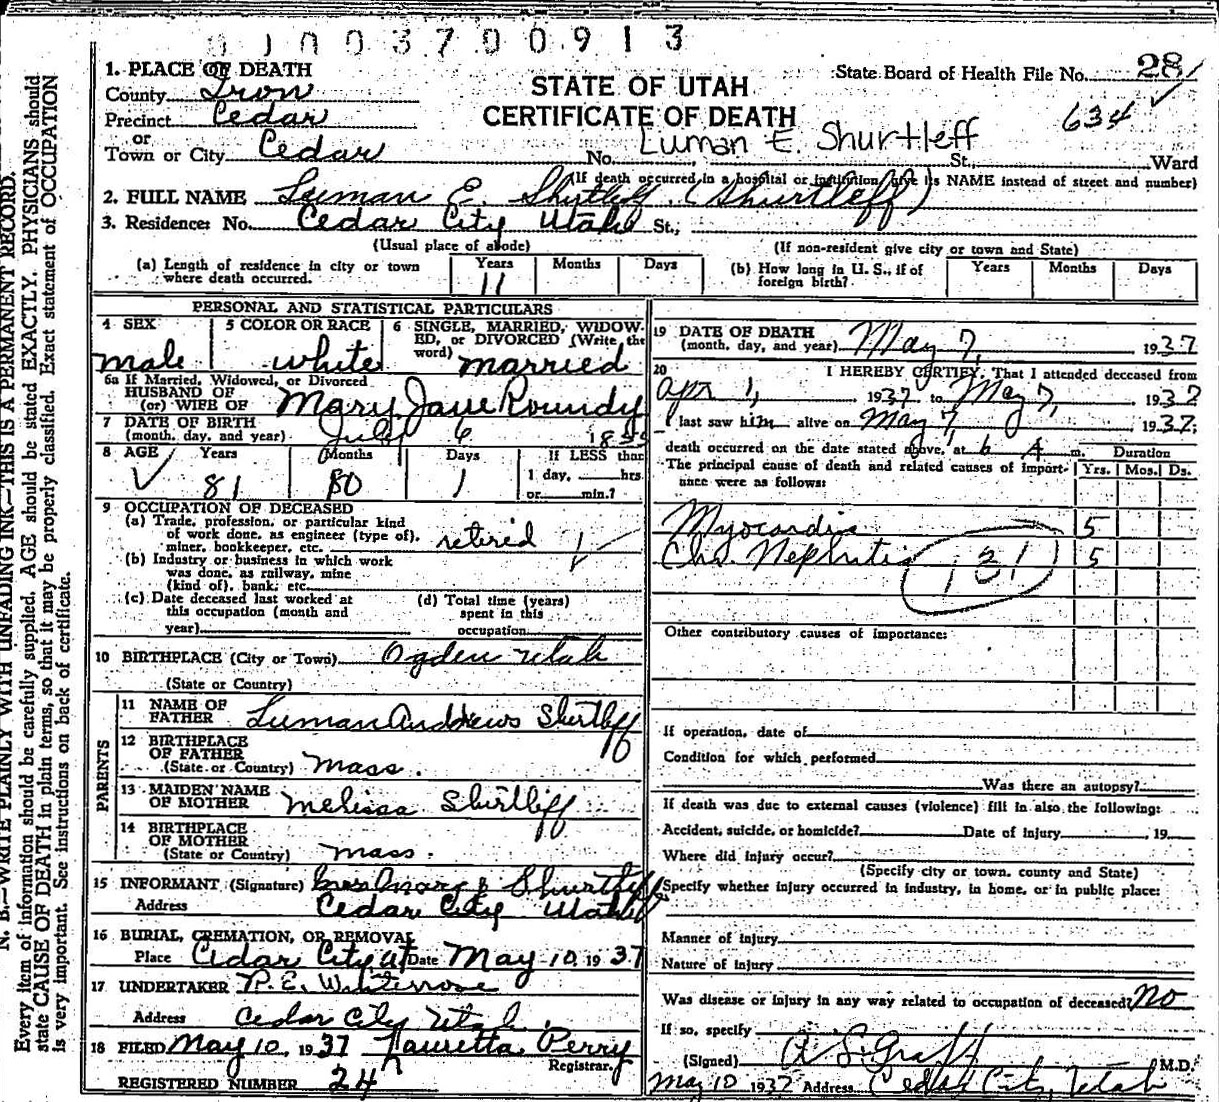 0100370 0913
1. PLACE OF DEATH
County Iron
Precinct Cedar
or
Town or City Cedar
STATE OF UTAH
CERTIFICATE OF DEATH
State Board of Health File No. 28
634
Luman E. Shurtleff
No. St., Ward
(If death occurred in a hospital or institution, give its NAME instead of street and number)
2. FULL NAME Luman E. (Shurtleff)
3. Residence: No. Cedar City Utah St.,
(Usual place of abode) (If non-resident give city or town and State)
(a) Length of residence in city or town where death occurred. Years 11 Months Days
(b) How long in U. S., if of foreign birth? Years Months Days
PERSONAL AND STATISTICAL PARTICULARS
4 SEX male
5 COLOR OR RACE white
6 SINGLE, MARRIED, WIDOW-
ED, or DIVORCED (Write the
word) married
6a If Married, Widowed, or Divorced
HUSBAND OF
(or) WIFE OF Mary Jane Roundy
7 DATE OF BIRTH
(month, day, and year) July 6 1855
8 AGE Years 81 Months 10 Days 1
If LESS than
1 day, hrs.
or min.?
9 OCCUPATION OF DECEASED
(a) Trade, profession, or particular kind
of work done, as engineer (type of),
miner, bookkeeper, etc. retired
(b) Industry or business in which work
was done, as railway, mine
(kind of), bank, etc.
(c) Date deceased last worked at
this occupation (month and
year)
(d) Total time (years)
spent in this
occupation
10 BIRTHPLACE (City or Town) Ogden Utah
(State or Country)
PARENTS
11 NAME OF
FATHER Luman Andrews Shurtliff
12 BIRTHPLACE
OF FATHER
(State or Country) Mass.
13 MAIDEN NAME
OF MOTHER Melissa Shurtliff
14 BIRTHPLACE
OF MOTHER
(State or Country) Mass.
15 INFORMANT (Signature) Mrs Mary J. Shurtleff
Address Cedar City Utah
16 BURIAL, CREMATION, OR REMOVAL
Place Cedar City Ut Date May 10 1937
17 UNDERTAKER P. E. Whiterose
Address Cedar City Utah.
18 FILED May 10, 1937 Lauretta Perry
Registrar.
REGISTERED NUMBER 24
19 DATE OF DEATH
(month, day, and year) May 7, 1937
20 I HEREBY CERTIFY, That I attended deceased from
Apr 1, 1937 to May 7, 1937
I last saw him alive on May 7, 1937;
death occurred on the date stated above, at 6 A m.
The principal cause of death and related causes of import-
ance were as follows:
Duration
Yrs. Mos. Ds.
Myocardia 5
Chr. Nephritis 5
131
Other contributory causes of importance:
If operation, date of
Condition for which performed
Was there an autopsy?
If death was due to external causes (violence) fill in also the following:
Accident, suicide, or homicide? Date of injury , 19
Where did injury occur?
(Specify city or town, county and State)
Specify whether injury occurred in industry, in home, or in public place:
Manner of injury
Nature of injury
Was disease or injury in any way related to occupation of deceased? No
If so, specify
(Signed) A L Graff M.D.
May 10 1937 Address Cedar City, Utah
N. B.—WRITE PLAINLY WITH UNFADING INK—THIS IS A PERMANENT RECORD.
Every item of information should be carefully supplied. AGE should be stated EXACTLY. PHYSICIANS should
state CAUSE OF DEATH in plain terms, so that it may be properly classified. Exact statement of OCCUPATION
is very important. See instructions on back of certificate.